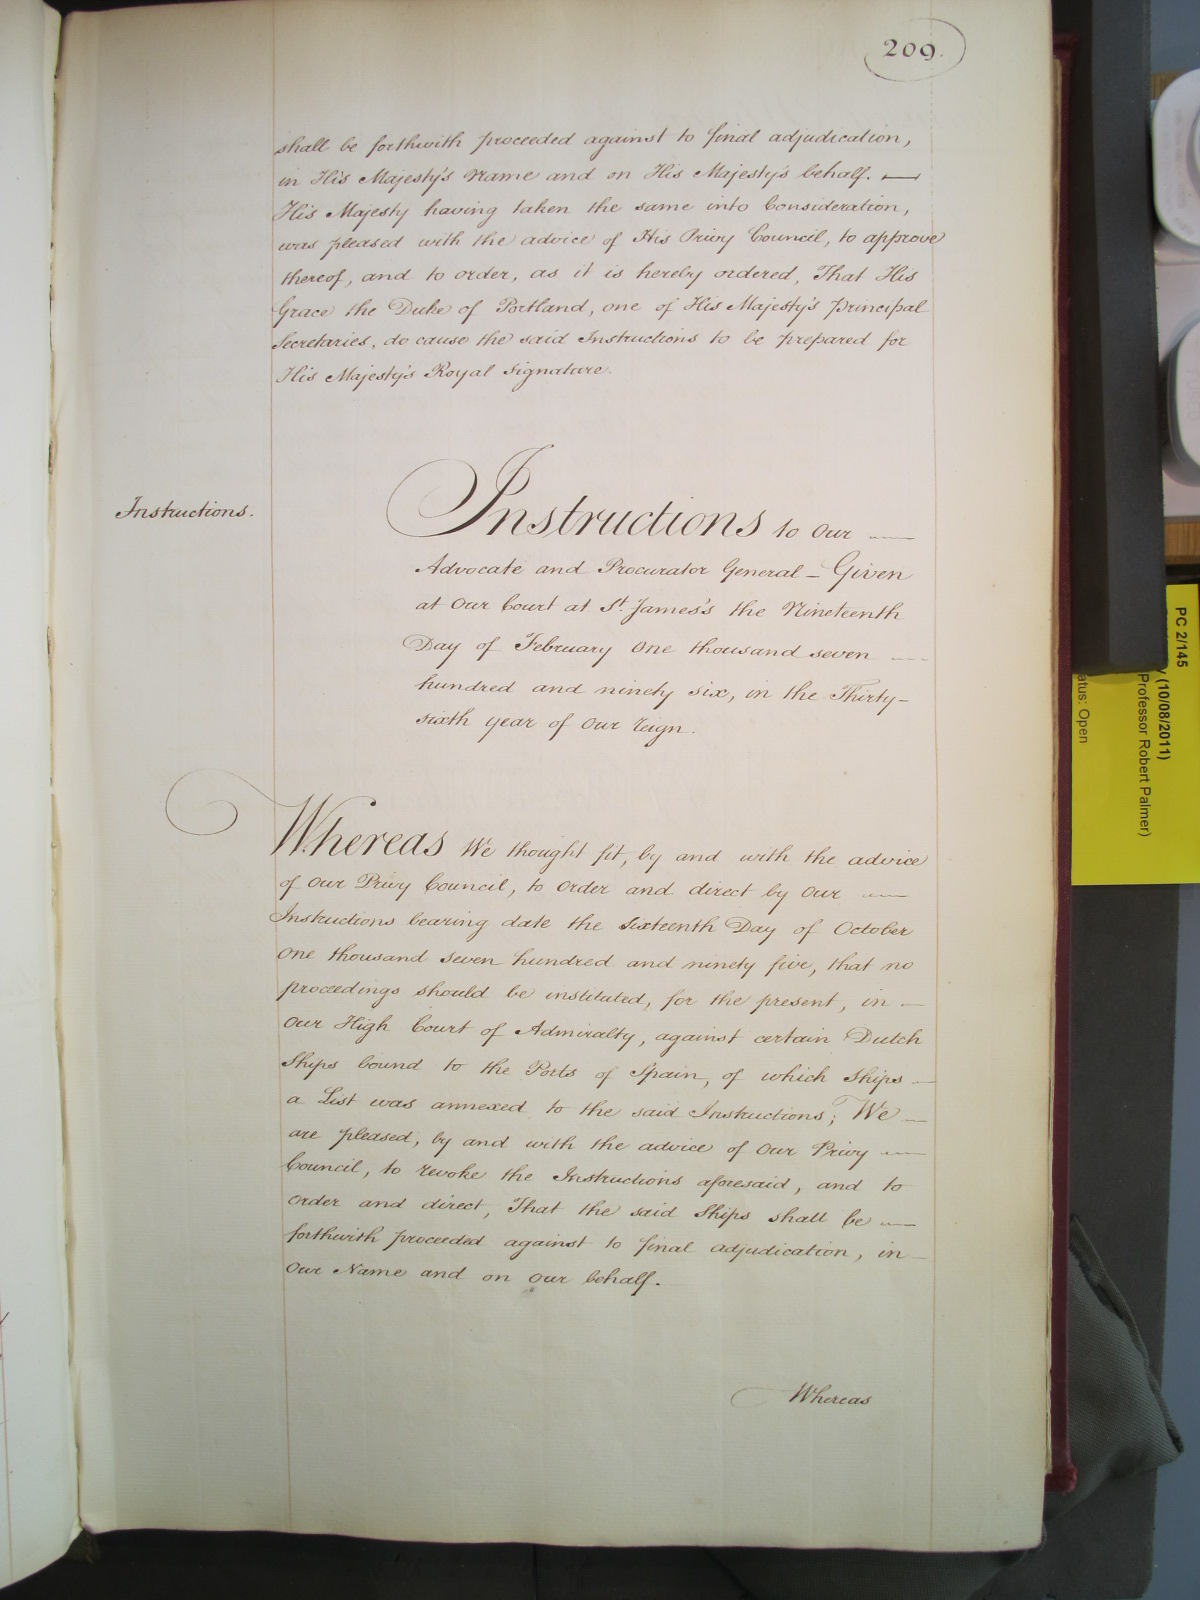 209.
shall be forthwith proceeded against to final adjudication,
in His Majesty's Name and on His Majesty's behalf. —
His Majesty having taken the same into Consideration,
was pleased with the advice of His Privy Council, to approve
thereof, and to order, as it is hereby ordered, That His
Grace the Duke of Portland, one of His Majesty's Principal
Secretaries, do cause the said Instructions to be prepared for
His Majesty's Royal Signature.
Instructions.
Instructions to Our —
Advocate and Procurator General — Given
at Our Court at St. James's the Nineteenth
Day of February One thousand seven —
hundred and ninety six, in the Thirty-
sixth year of Our Reign.
Whereas We thought fit, by and with the advice
of Our Privy Council, to Order and direct by Our —
Instructions bearing date the Sixteenth Day of October
One thousand Seven hundred and ninety five, that no
proceedings should be instituted, for the present, in —
Our High Court of Admiralty, against certain Dutch
Ships bound to the Ports of Spain, of which Ships —
a List was annexed to the said Instructions; We —
are pleased, by and with the advice of Our Privy —
Council, to revoke the Instructions aforesaid, and to
Order and direct, That the said Ships shall be —
forthwith proceeded against to final adjudication, in —
Our Name and on Our behalf.
Whereas
PC 2/145
y (10/08/2011)
Professor Robert Palmer)
atus: Open